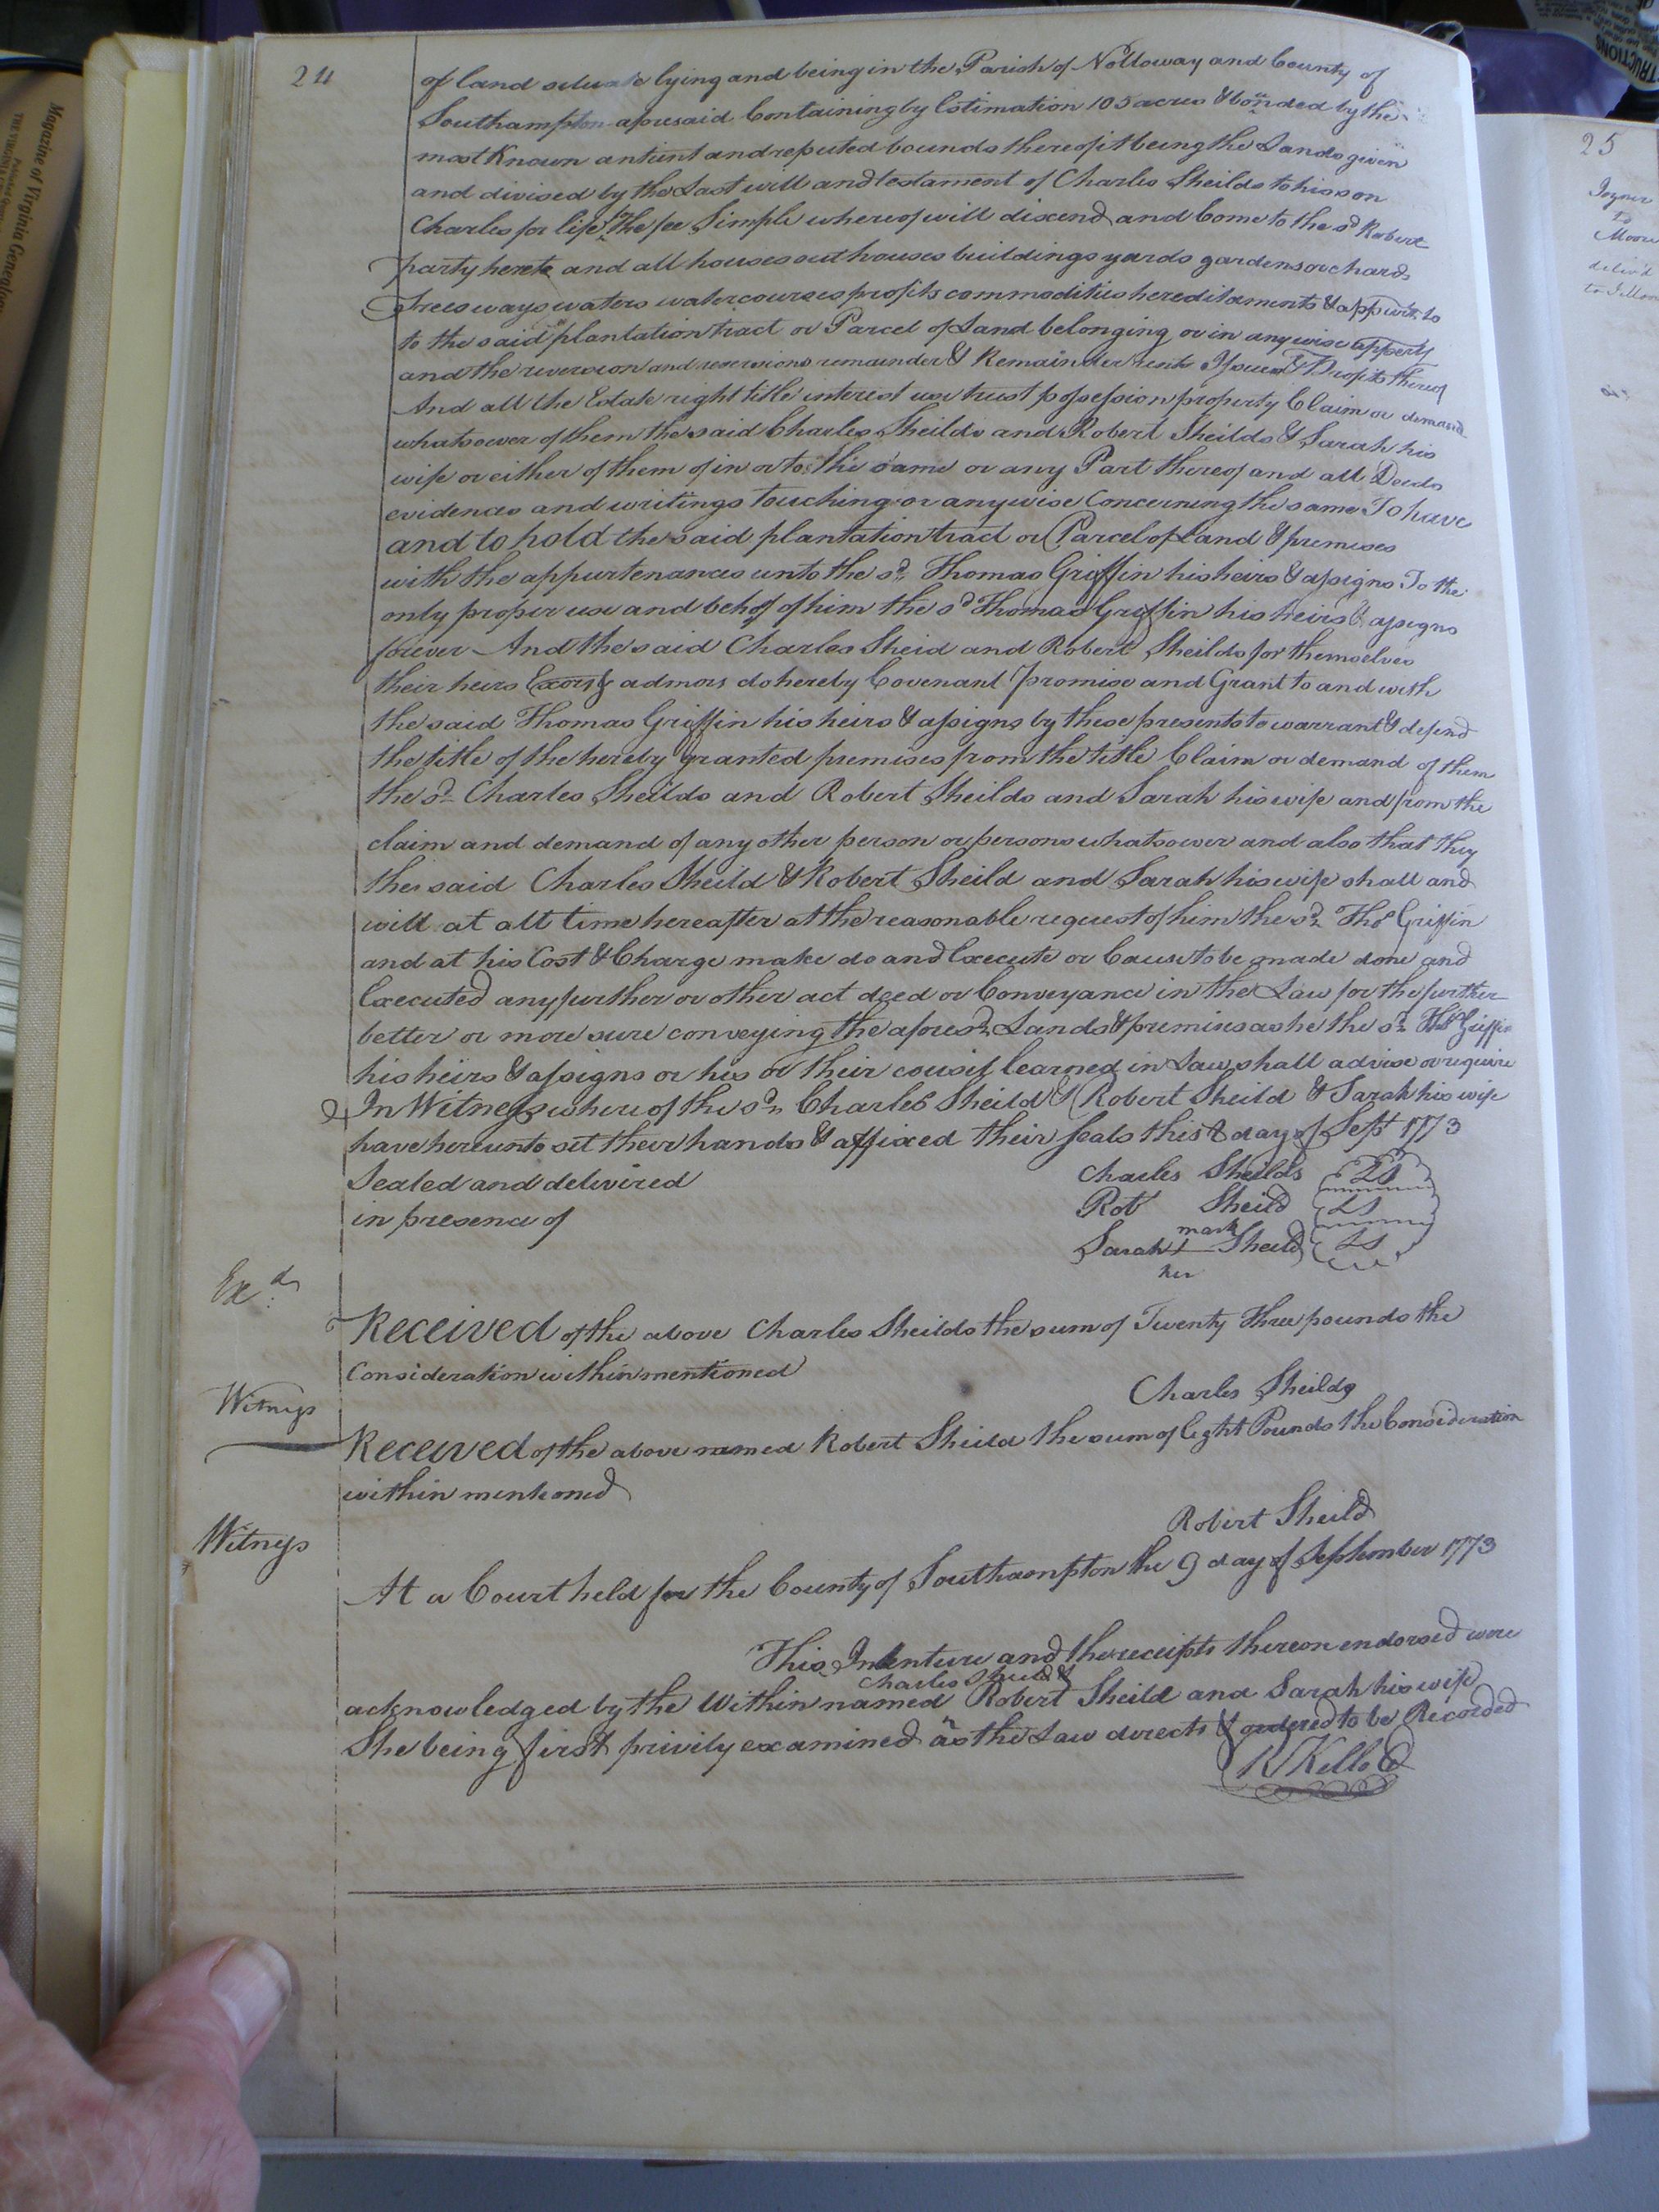 24
of land situate lying and being in the Parish of Nottoway and County of
Southampton aforesaid Containing by Estimation 105 acres & bounded by the
most Known antient and reputed bounds thereof it being the Lands given
and divised by the Last will and testament of Charles Sheilds to his son
Charles for life The fee Simple whereof will discend and Come to the sd Robert
party hereto and all houses out houses buildings yards gardens orchards
Trees ways waters watercourses profits commodities hereditaments & appurts to
to the said plantation tract or Parcel of Land belonging or in any wise apperty
and the revercon and reversions remainder & Remainder rents Issues & Profits thereof
And all the Estate right title interest use trust possession property Claim or demand
whatsoever of them the said Charles Sheilds and Robert Sheilds & Sarah his
wife or either of them of in or to the same or any Part thereof and all Deeds
evidences and writings touching or anywise Concerning the same To have
and to hold the said plantation tract or Parcel of Land & premises
with the appurtenances unto the sd Thomas Griffin his heirs & assigns To the
only proper use and behoof of him the sd Thomas Griffin his heirs & assigns
forever And the said Charles Sheid and Robert Sheilds for themselves
their heirs Exors & admors do hereby Covenant Promise and Grant to and with
the said Thomas Griffin his heirs & assigns by these presents to warrant & defend
the title of the hereby granted premises from the title Claim or demand of them
the sd Charles Sheilds and Robert Sheilds and Sarah his wife and from the
claim and demand of any other person or persons whatsoever and also that they
the said Charles Sheild & Robert Sheild and Sarah his wife shall and
will at all time hereafter at the reasonable request of him the sd Thos Griffin
and at his Cost & Charge make do and Execute or Cause to be made done and
Executed any further or other act deed or Conveyance in the Law for the further
better or more sure conveying the aforesd Lands & premises as he the sd Thos Griffin
his heirs & assigns or his or their counsil learned in Law shall advise or require
In Witness whereof the sd Charles Sheild & Robert Sheild & Sarah his wife
have hereunto set their hands & affixed their seals this 8 day of Sept 1773
Sealed and delivired
in presence of
Charles Sheilds LS
Robt Sheild LS
mark
Sarah + Sheild LS
her
Exd
Received of the above Charles Sheilds the sum of Twenty Three pounds the
Consideration within mentioned
Charles Sheilds
Witness
Received of the above named Robert Sheild the sum of Eight Pounds the Consideration
within mentioned
Robert Sheild
Witness
At a Court held for the County of Southampton the 9 day of September 1773
This Indenture and the receipts thereon endorsed were
Charles Sheild &
acknowledged by the Within named Robert Sheild and Sarah his wife
She being first privily examined as the Law directs & ordered to be Recorded
R Kello C
25
Joyner
to
Moore
deliv'd
Magazine of Virginia Genealogy